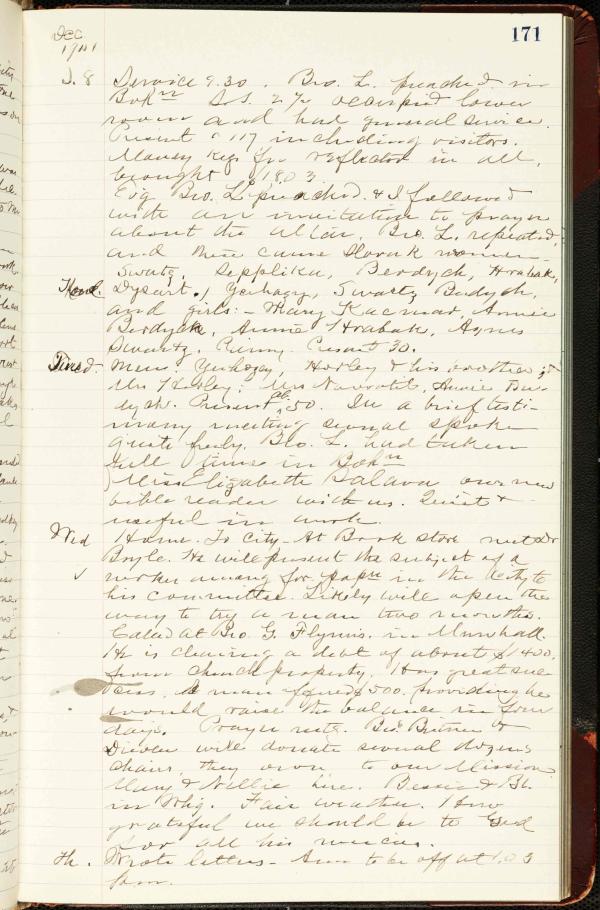 Dec. 171
1901
S. 8 Service 9.30. Bro. L. preached in
Boh S.S. 2 occupied lower
room and had general service.
Present 117 including visitors.
Money for in all,
brought 18.03
Bro. L. preached. & I followed
with an invitation to prayer
about the altar. Bro. L. repeated,
and there came Slovak women
Swartz, Sepplika, Berdych, Hrabak,
Dysart, Swartz, Budych,
and girls:- Mary Kacmar, Annie
Berdych, Annie Hrabak, Agnes
Swartz. Present 30.
Men: Horley & his brother, &
Mrs Horley; Mrs Navratil, Annie
Present 50. In a brief testi-
mony meeting several spoke
quite freely. Bro. L. had taken
full time in Boh
Miss Elizabeth Salava our new
bible reader with us. Quiet &
useful in work.
Wed Home. To City - At Book store met Dr
Boyle. He will present the subject of a
worker among for. pop in the city to
his committee. Likely will open the
way to try a man two months.
Called at Bro. G. Flynn's. in Munhall.
He is clearing a debt of about $1400.
from church property. Has great suc-
cess. A man offered $500. providing he
would raise the balance in four
days. Prayer mtg. Bro's Bitner &
will donate several dozens
chairs, they own to our Mission
Mary & Willie here. Bessie &
in Fair weather. How
grateful we should be to God
for all his mercies.
Th. Wrote letters - Am to be off at 1.03
p.m.